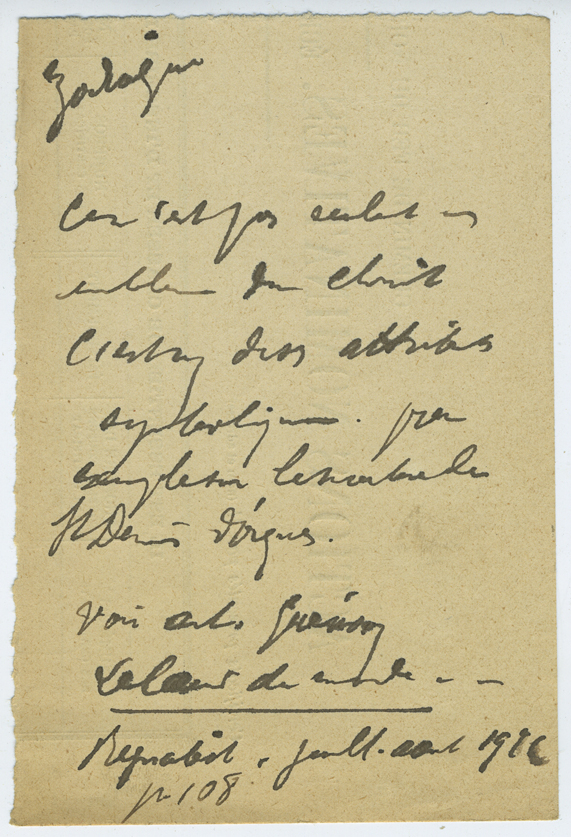 Zodiaque
Ce n'est pas seulet un
emblème du Christ
C'est un de ses attributs
symboliques. par
exemple sur le marbre de
St Denis d'Orques.
Voir art. Guénon
Le Cœur du monde - -
Regnabit. juill. aout 1926
p. 108